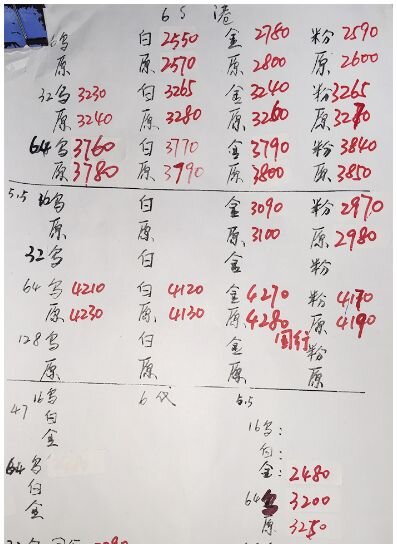 6S 港
乌 白 2550 金 2780 粉 2590
原 原 2570 原 2800 原 2600
32乌 3230 白 3265 金 3240 粉 3265
原 3240 原 3280 原 3260 原 3270
64乌 3760 白 3770 金 3790 粉 3840
原 3780 原 3790 原 3800 原 3850
5.5 乌 白 金 3090 粉 2970
原 原 原 3100 原 2980
32乌 白 金 粉
64乌 4210 白 4120 金 4270 粉 4170
原 4230 原 4130 原 4280 原 4190
国行
128乌 白 金 粉
原 原 原 原
47 16乌 6代
白
金
64乌
白
金
16乌:
白:
金: 2480
64 3200
原 3250